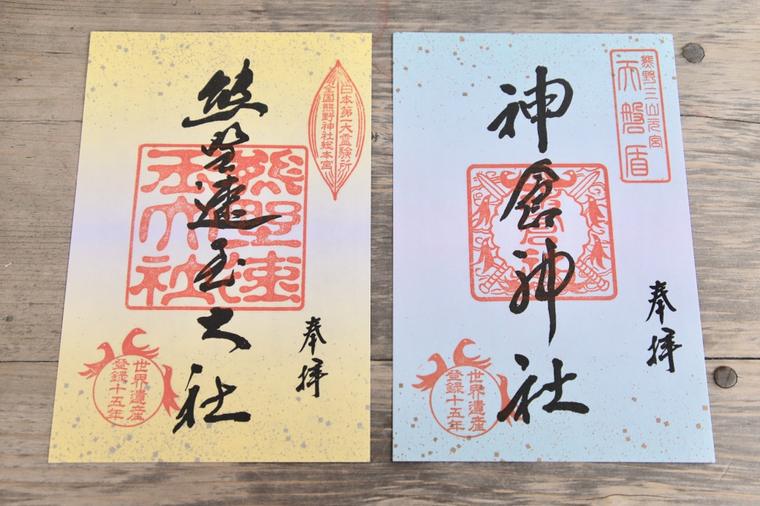 奉拝
日本第一大霊験所
全国熊野神社総本宮
熊野速玉大社
熊野速玉大社
世界遺産
登録十五年
奉拝
熊野三山元宮
天磐盾
神倉神社
世界遺産
登録十五年